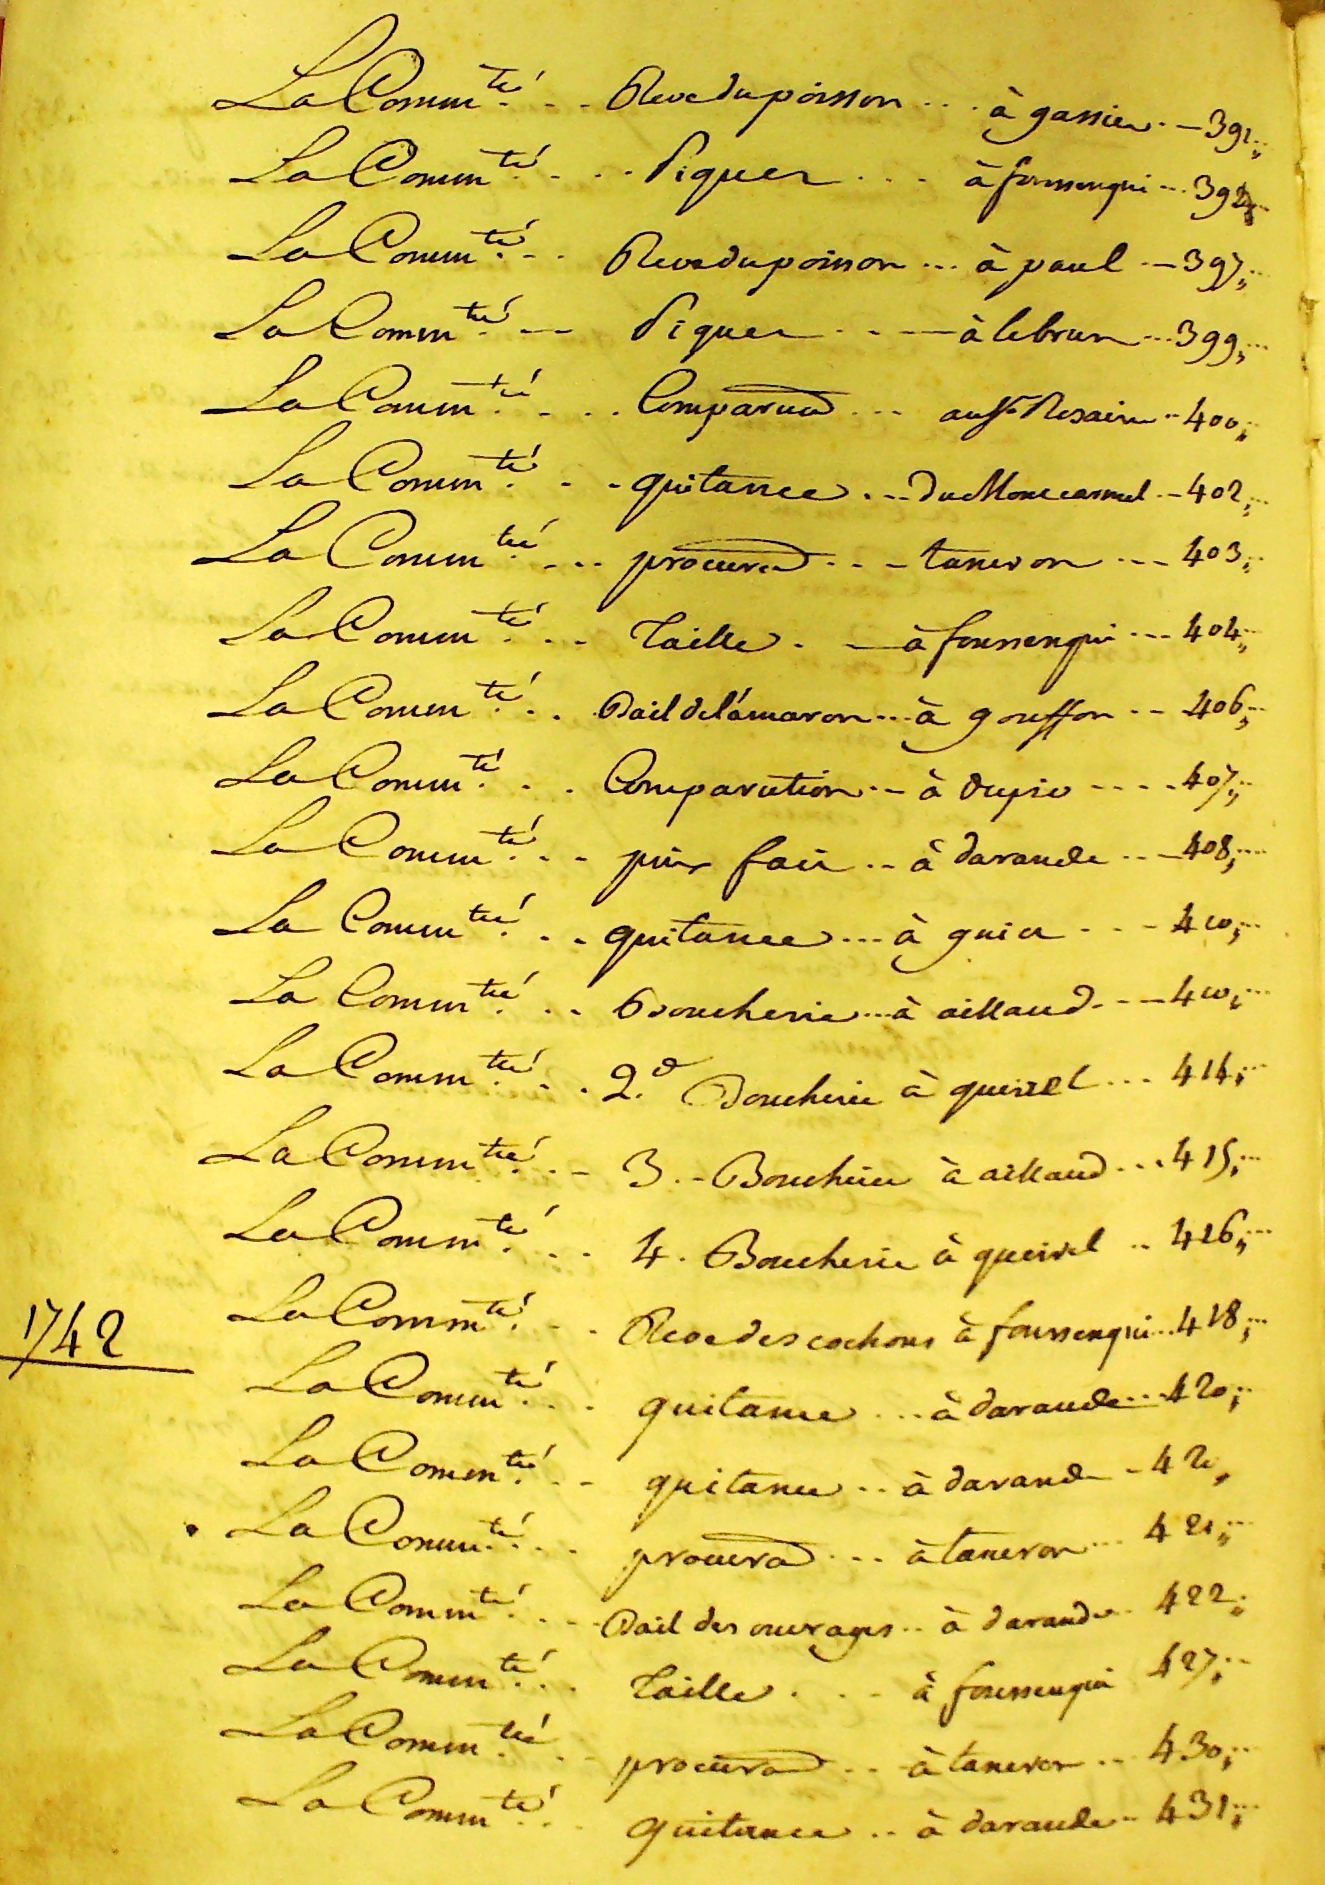 La Comm.té . . . Reve du poisson . . . à gassier . . 391
La Comm.té . . . Piquet . . . à foussenqui . . . 392
La Comm.té . . . Reve du poisson . . . à paul . . 397
La Comm.té . . . Piquet . . . à lebrun . . . 399
La Comm.té . . . Comparu͠on . . . au St Rosaire . . 400
La Comm.té . . . quitance . . . du Mont carmel . . 402
La Comm.té . . . procura͠on . . . taneron . . . 403
La Comm.té . . . Taille . . à foussenqui . . . 404
La Comm.té . . . Bail de l'amaron . . . à gouffon . . 406
La Comm.té . . . Comparution . . à . . . . 407
La Comm.té . . . prix fait . . à daraude . . . 408
La Comm.té . . . quitance . . . à guiex . . . 410
La Comm.té . . . Boucherie . . . à aillaud . . . 410
La Comm.té . . . 2.e Boucherie à queirel . . . 414
La Comm.té . . . 3 . . Boucherie à aillaud . . . 415
La Comm.té . . . 4 . Boucherie à queirel . . 416
1742
La Comm.té . . . Reve des cochons à foussenqui . . . 418
La Comm.té . . . quitance . . . à daraude . . . 420
La Comm.té . . . quitance . . à daraude . . 420
La Comm.té . . . procura͠on . . . à taneron . . . 421
La Comm.té . . . Bail des ouvrages . . à daraude . . 422
La Comm.té . . . Taille . . . à foussenqui 427
La Comm.té . . . procura͠on . . . à taneron . . 430
La Comm.té . . . quitance . . à daraude . . 431